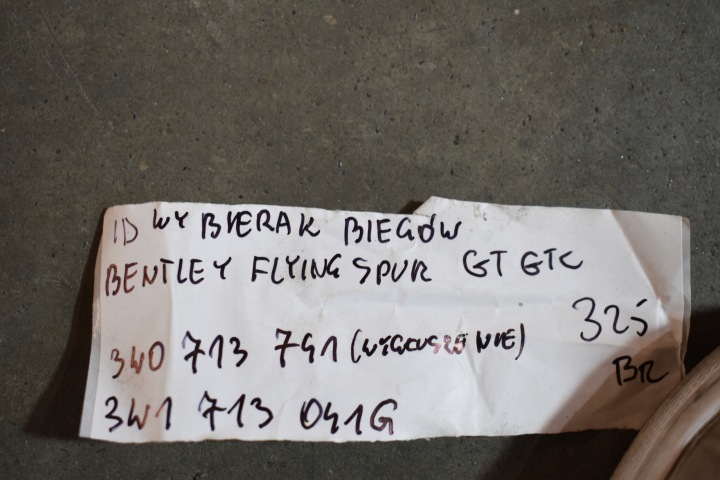 ID WYBIERAK BIEGÓW
BENTLEY FLYING SPUR GT GTC
325
3W0 713 741 (WYGŁUSZENIE)
BR
3W1 713 041G